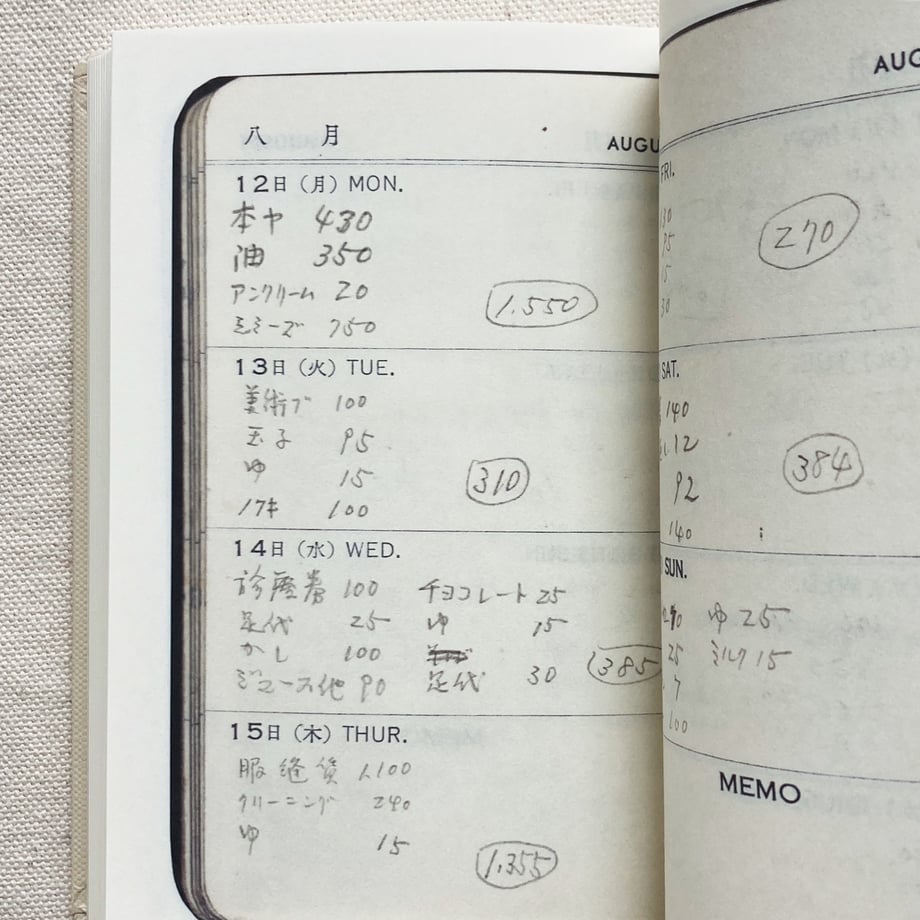 八 月 AUGU
12日（月）MON.
本ヤ 430
油 350
アンクリーム 20
シミーズ 750
1.550
13日（火）TUE.
美術ブ 100
玉子 95
ゆ 15
ノアキ 100
310
14日（水）WED.
診療券 100 チョコレート 25
足代 25 ゆ 15
かし 100
ジュース他 90 足代 30
385
15日（木）THUR.
服縫賃 1,100
クリーニング 240
ゆ 15
1.355
AUG
FRI.
30
95
15
30
270
SAT.
140
12
92
140
384
SUN.
ゆ 25
25 ミルク 15
7
100
MEMO